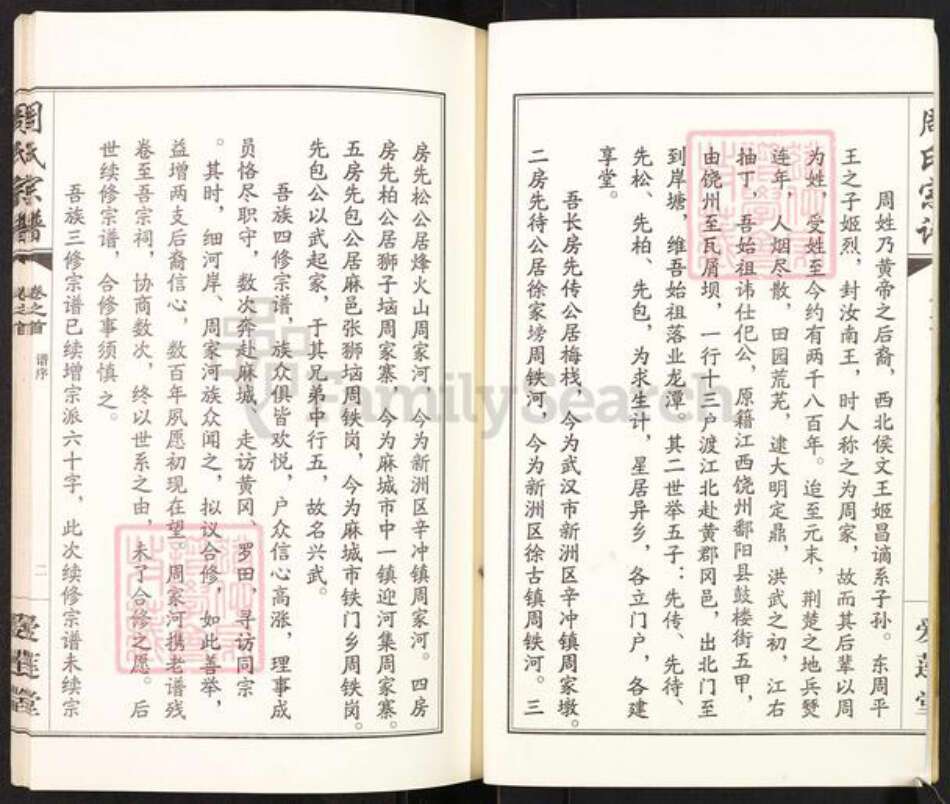 周氏宗谱
爱莲堂
周姓乃黄帝之后裔，西北侯文王姬昌谪系子孙。东周平
王之子姬烈，封汝南王，时人称之为周家，故而其后辈以周
为姓，受姓至今约有两千八百年。迨至元末，荆楚之地兵燹
连年，人烟尽散，田园荒芜，逮大明定鼎，洪武之初，江右
抽丁，吾始祖讳仕化公，原籍江西饶州鄱阳县鼓楼街五甲，
由饶州至瓦屑坝，一行十三户渡江北赴黄郡冈邑，出北门至
到岸塘，维吾始祖落业龙潭。其二世举五子：先传、先待、
先松、先柏、先包，为求生计，星居异乡，各立门户，各建
享堂。
吾长房先传公居梅栈，今为武汉市新洲区辛冲镇周家墩。
二房先待公居徐家塝周铁河，今为新洲区徐古镇周铁河。三
房先松公居烽火山周家河，今为新洲区辛冲镇周家河。四房
房先柏公居狮子垴周家寨，今为麻城市中一镇迎河集周家寨。
五房先包公居麻邑张狮垴周铁岗，今为麻城市铁门乡周铁岗。
先包公以武起家，于其兄弟中行五，故名兴武。
吾族四修宗谱，族众俱皆欢悦，户众信心高涨，理事成
员恪尽职守，数次奔赴麻城、走访黄冈、罗田，寻访同宗
。其时，细河岸、周家河族众闻之，拟议合修，如此善举，
益增两支后裔信心，数百年夙愿初现在望，周家河携老谱残
卷至吾宗祠，协商数次，终以世系之由，未了合修之愿。后
世续修宗谱，合修事须慎之。
吾族三修宗谱已续增宗派六十字，此次续修宗谱未续宗
周氏宗谱
卷之首
谱序
二
爱莲堂
FamilySearch